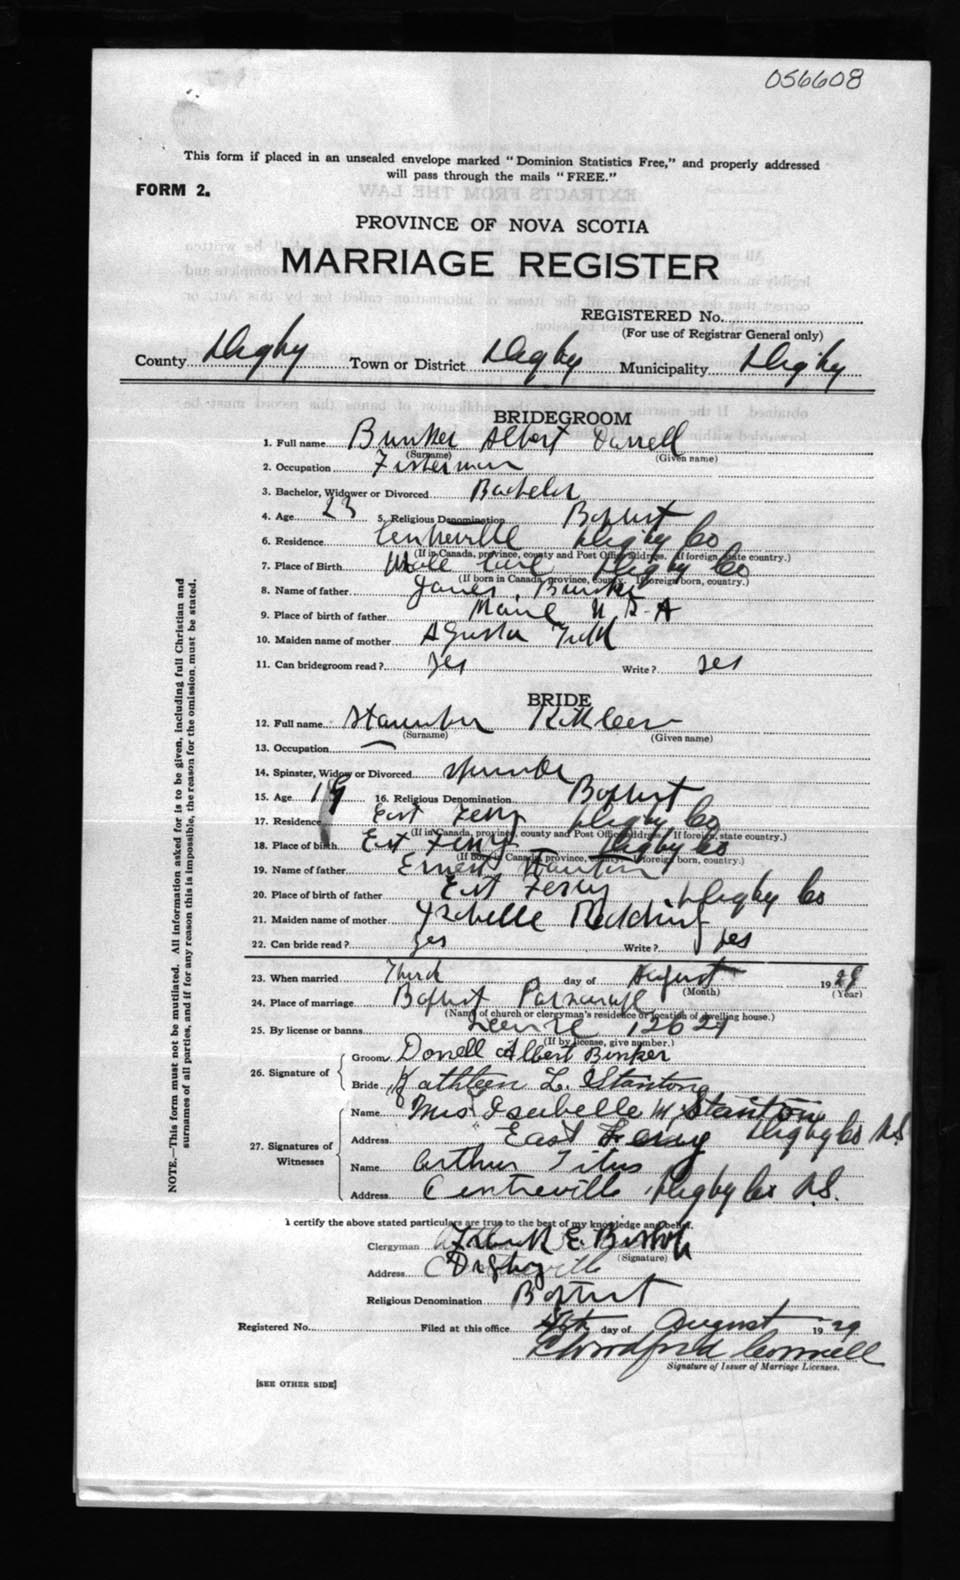 056608
This form if placed in an unsealed envelope marked "Dominion Statistics Free," and properly addressed
will pass through the mails "FREE."
FORM 2.
PROVINCE OF NOVA SCOTIA
MARRIAGE REGISTER
REGISTERED No.
(For use of Registrar General only)
County Digby Town or District Digby Municipality Digby
BRIDEGROOM
1. Full name Bunker Albert Darrell
(Surname) (Given name)
2. Occupation Fisherman
3. Bachelor, Widower or Divorced Bachelor
4. Age 23 5. Religious Denomination Baptist
6. Residence Centreville Digby Co
(If in Canada, province, county and Post Office address. If foreign, state country.)
7. Place of Birth Cove Digby Co
(If born in Canada, province, county. If foreign born, country.)
8. Name of father James Bunker
9. Place of birth of father Maine U.S.A
10. Maiden name of mother Agusta
11. Can bridegroom read? yes Write? yes
BRIDE
12. Full name Kathleen
(Surname) (Given name)
13. Occupation —
14. Spinster, Widow or Divorced Spinster
15. Age 19 16. Religious Denomination Baptist
17. Residence East Ferry Digby Co
(If in Canada, province, county and Post Office address. If foreign, state country.)
18. Place of birth East Ferry Digby Co
(If born in Canada, province, county. If foreign born, country.)
19. Name of father Ernest Stanton
20. Place of birth of father East Ferry Digby Co
21. Maiden name of mother
22. Can bride read? yes Write? yes
23. When married Third day of August 1929
(Month) (Year)
24. Place of marriage Baptist Parsonage
(Name of church or clergyman's residence or location of dwelling house.)
25. By license or banns License 12621
(If by license, give number.)
26. Signature of Groom Dorrell Albert Bunker
Bride Kathleen L. Stanton
27. Signatures of Witnesses
Name Mrs Isabelle M Stanton
Address East Ferry Digby Co N.S
Name Arthur Titus
Address Centreville Digby Co N.S.
I certify the above stated particulars are true to the best of my knowledge and belief.
Clergyman E. Bishop
(Signature)
Address Digby
Religious Denomination Baptist
Registered No. Filed at this office day of August 1929
Signature of Issuer of Marriage Licenses.
[SEE OTHER SIDE]
NOTE.—This form must not be mutilated. All information asked for is to be given, including full Christian and
surnames of all parties, and if for any reason this is impossible, the reason for the omission must be stated.